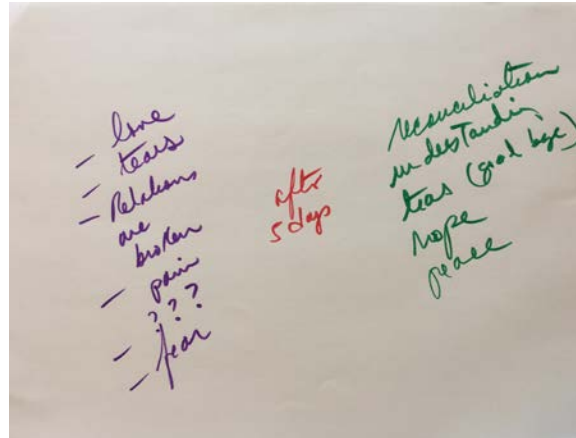 - love
- tears
- Relations
are
broken
- pain
- ???
- fear
after
5 days
reconciliation
understandin
teas (good bye)
hope
peace